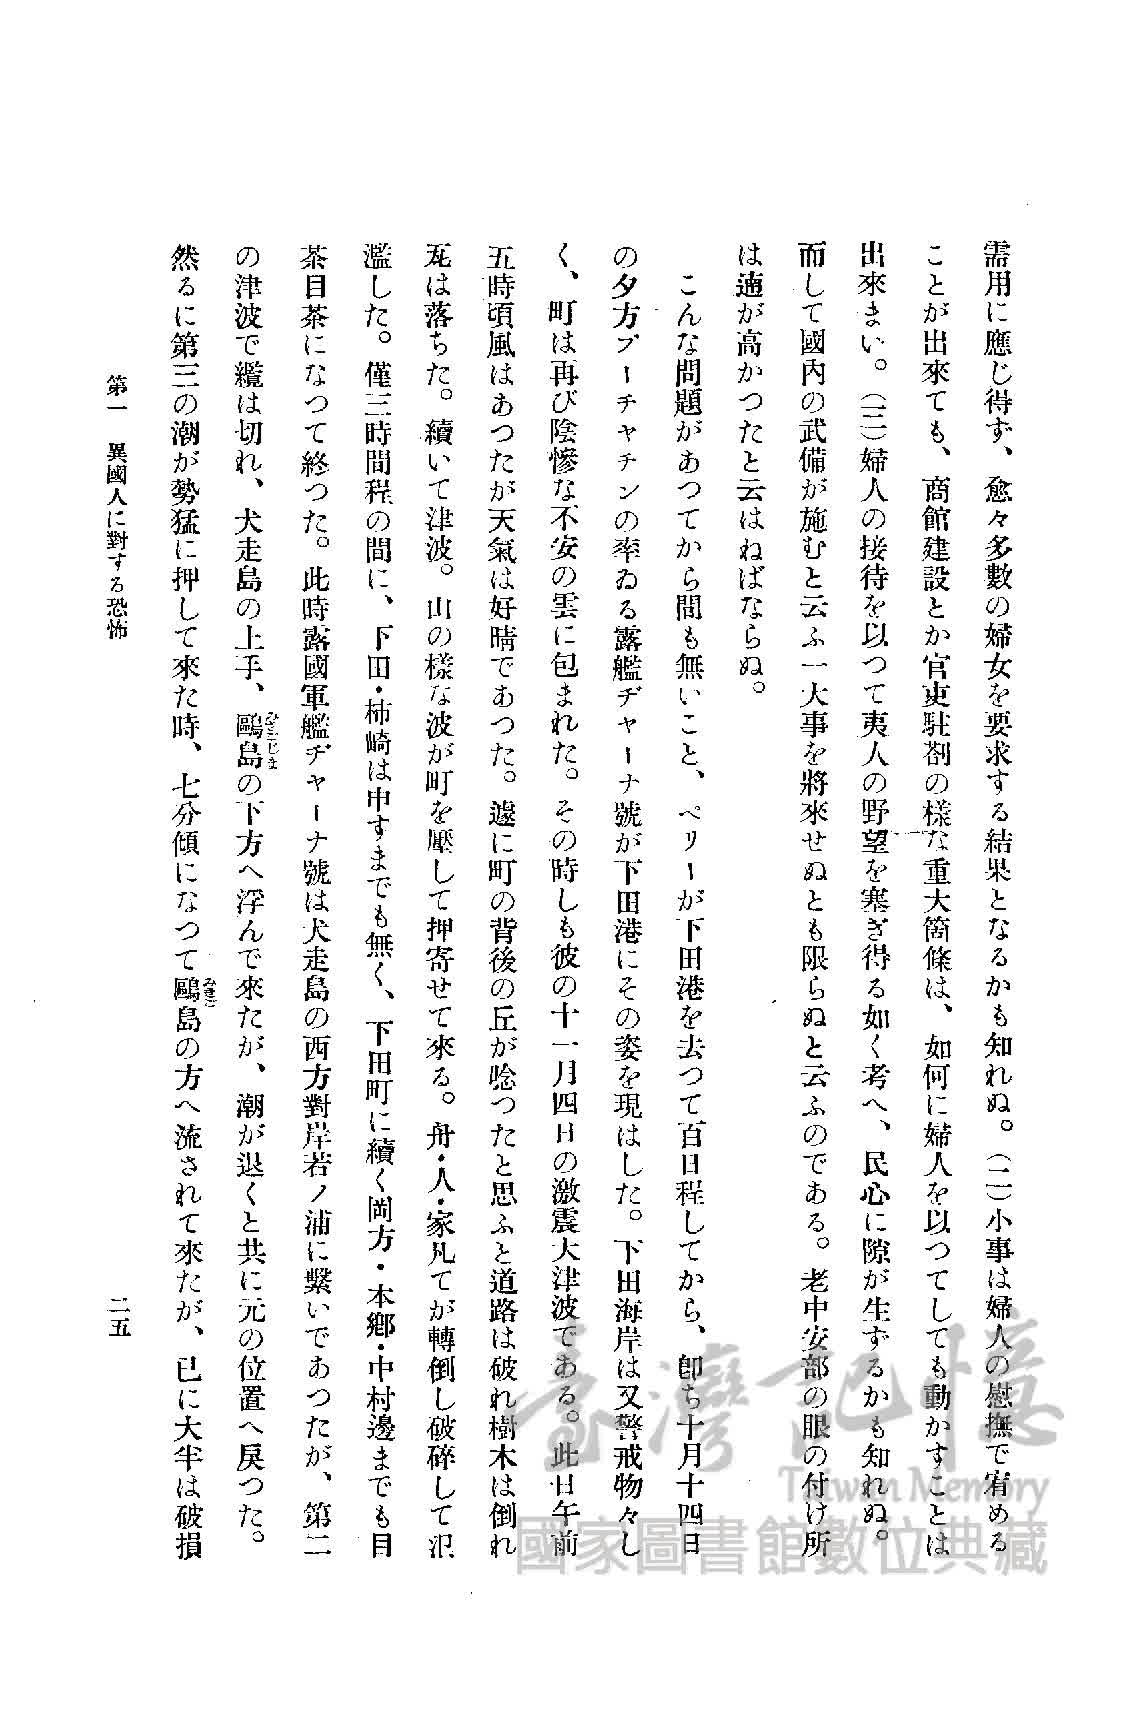 需用に應じ得ず、愈々多數の婦女を要求する結果となるかも知れぬ。(二)小事は婦人の慰撫で宥める
ことが出來ても、商館建設とか官吏駐剳の樣な重大箇條は、如何に婦人を以つてしても動かすことは
出來まい。(三)婦人の接待を以つて夷人の野望を塞ぎ得る如く考へ、民心に隙が生ずるかも知れぬ。
而して國内の武備が施むと云ふ一大事を將來せぬとも限らぬと云ふのである。老中安部の眼の付け所
は適が高かつたと云はねばならぬ。
こんな問題があつてから間も無いこと、ペリーが下田港を去つて百日程してから、卽ち十月十四日
の夕方プーチャチンの率ゐる露艦ヂャーナ號が下田港にその姿を現はした。下田海岸は又警戒物々し
く、町は再び陰慘な不安の雲に包まれた。その時しも彼の十一月四日の激震大津波である。此日午前
五時頃風はあつたが天氣は好晴であつた。遽に町の背後の丘が唸つたと思ふと道路は破れ樹木は倒れ
瓦は落ちた。續いて津波。山の樣な波が町を壓して押寄せて來る。舟・人・家凡てが轉倒し破碎して汜
濫した。僅三時間程の間に、下田・柿崎は申すまでも無く、下田町に續く岡方・本鄕・中村邊までも目
茶目茶になつて終つた。此時露國軍艦ヂャーナ號は犬走島の西方對岸若ノ浦に繫いであつたが、第二
の津波で纜は切れ、犬走島の上手、鷗島の下方へ浮んで來たが、潮が退くと共に元の位置へ戾つた。
みさごじま
然るに第三の潮が勢猛に押して來た時、七分傾になつて鷗島の方へ流されて來たが、已に大半は破損
みさご
第一 異國人に對する恐怖
二五
臺灣記憶
Taiwan Memory
國家圖書館數位典藏